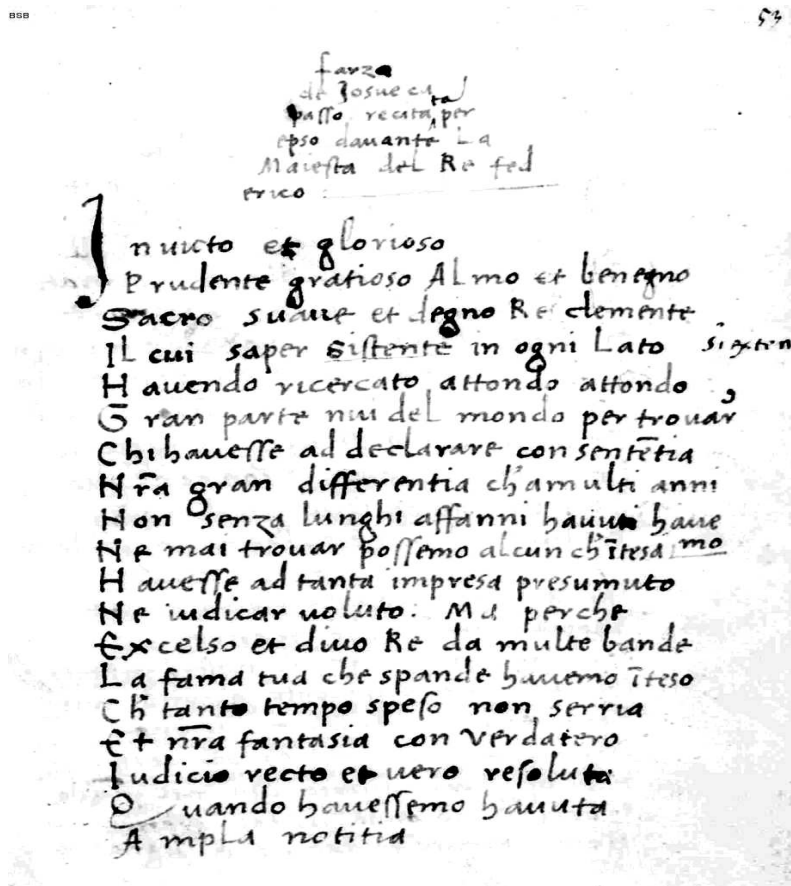 BSB
53
farza
de Josue ca
passo recita ta per
epso davante La
Maiesta del Re fed
erico
Invicto et glorioso
Prudente gratioso Almo et benegno
Sacro suave et degno Re clemente
IL cui saper Sistente in ogni Lato si exten
Havendo ricercato attondo attondo
Gran parte nui del mondo per trovar
Chi havesse ad declarare con sentētia
Nr̄a gran differentia ch̄ a multi anni
Non senza lunghi affanni havuti have
Ne mai trovar possemo alcun ch̄ ītesa mo
Havesse ad tanta impresa presumuto
Ne iudicar voluto. Ma perche
Excelso et divo Re da multe bande
La fama tua che spande havemo īteso
Ch̄ tanto tempo speso non serria
Et nr̄a fantasia con verdatero
Iudicio recto et vero resoluta
Quando havessemo havuta
Ampla notitia